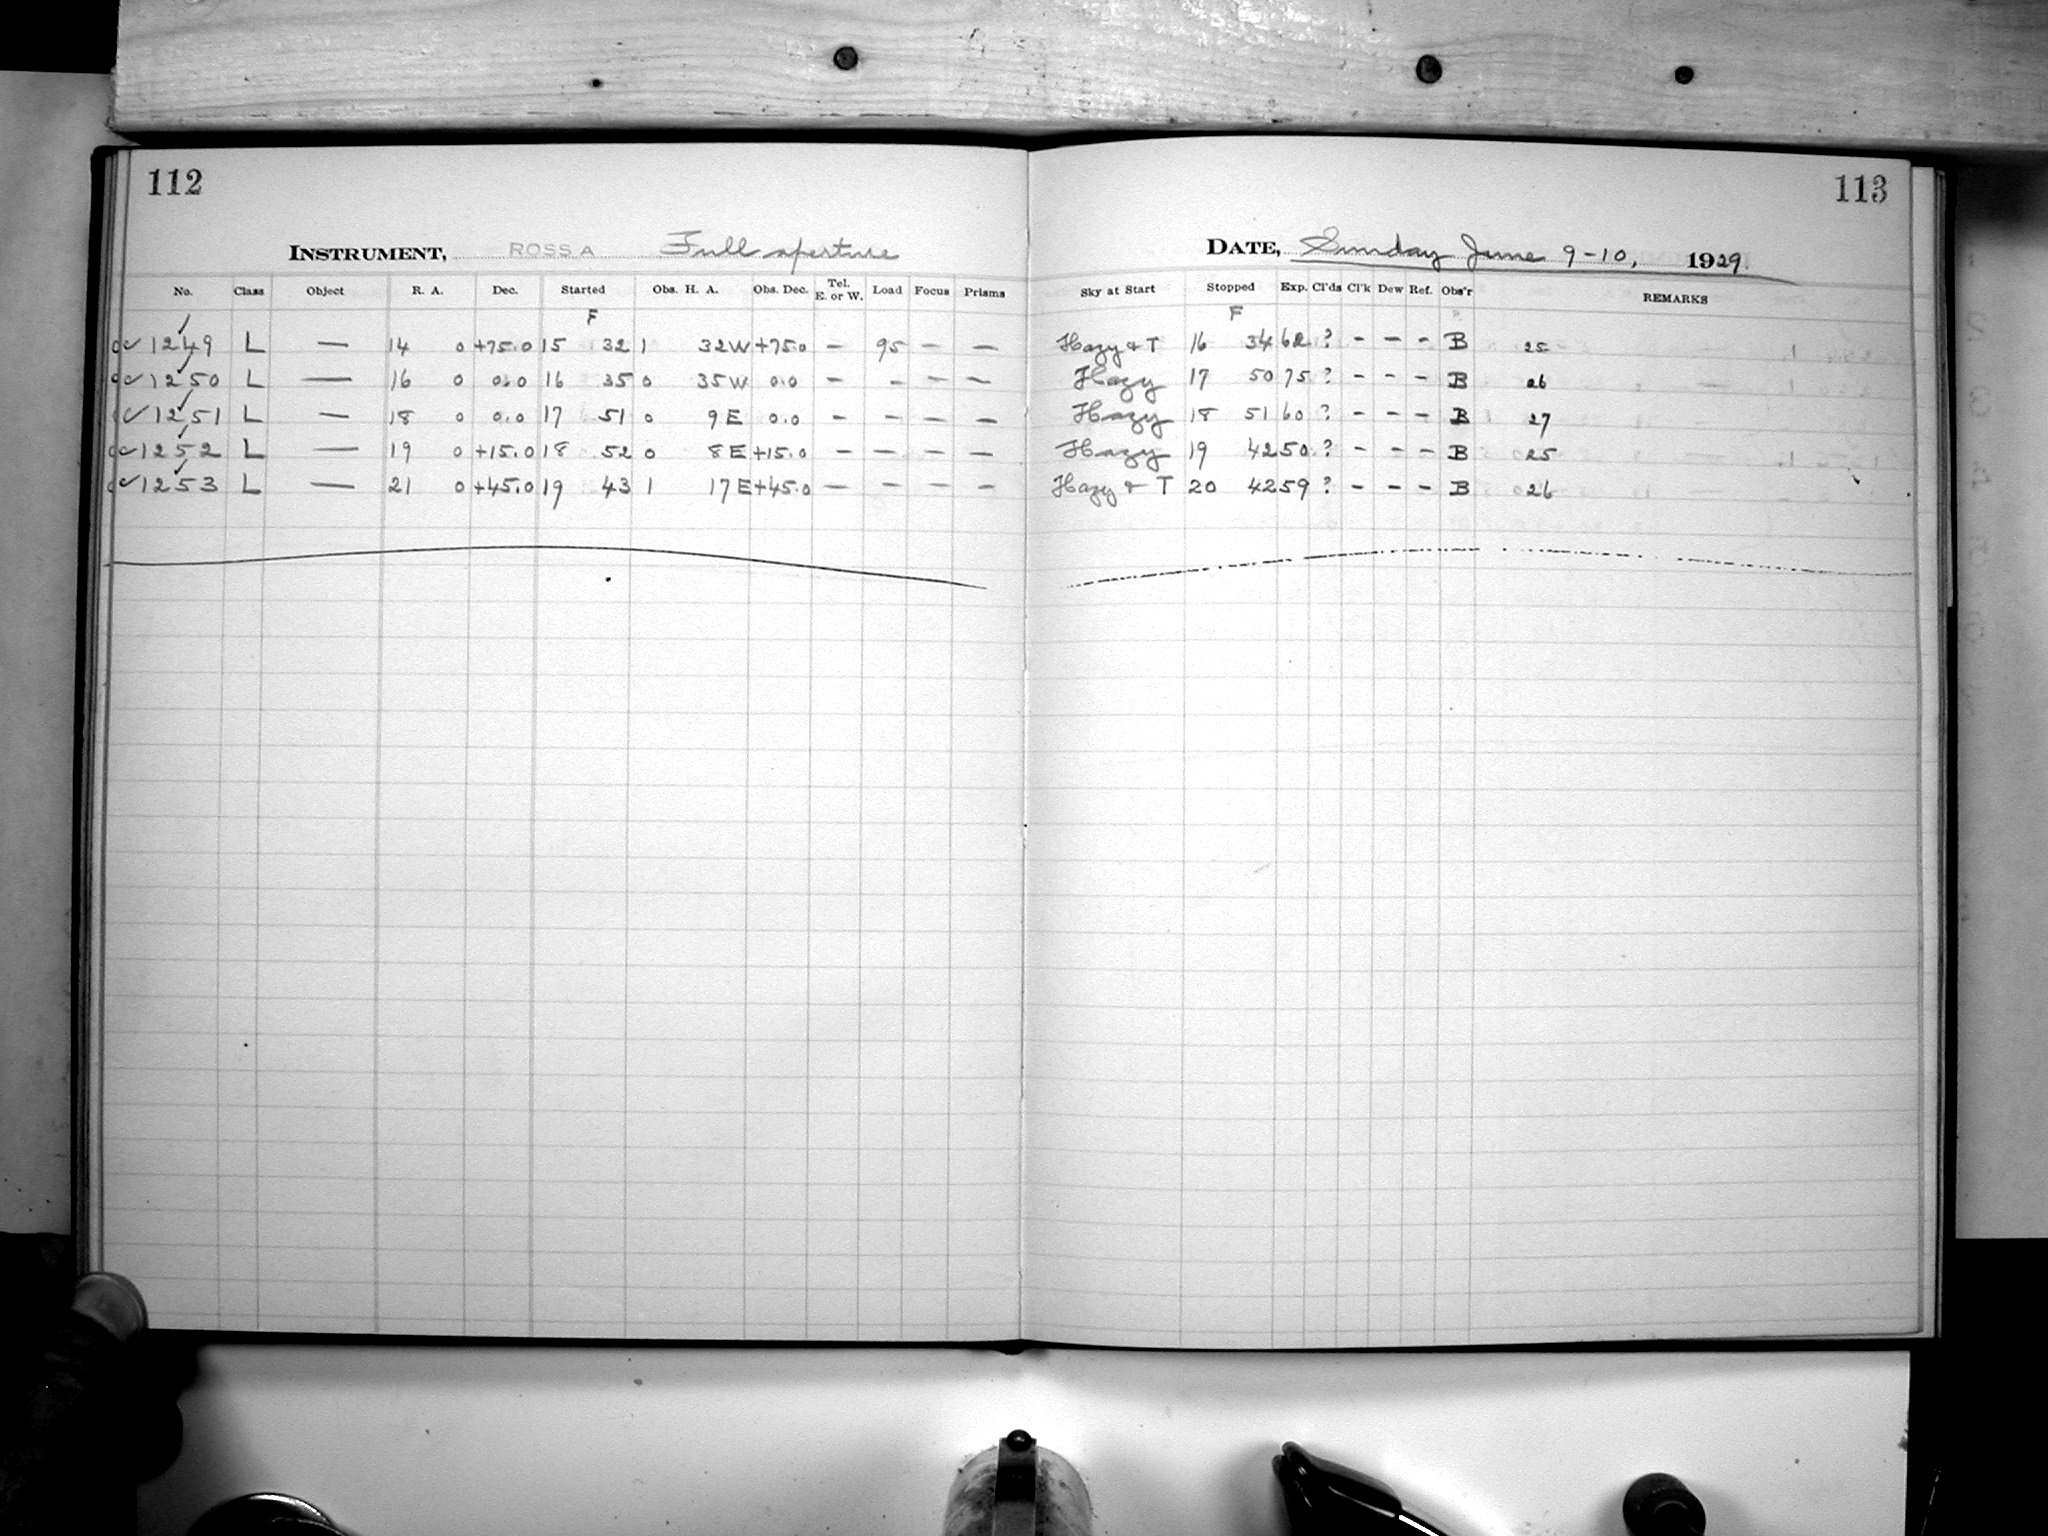 112
INSTRUMENT, ROSS A Full aperture
No. Class Object R. A. Dec. Started Obs. H. A. Obs. Dec. Tel. E. or W. Load Focus Prisms
F
✓1249 L — 14 0 +75.0 15 32 1 32W +75.0 – 95 – –
✓1250 L — 16 0 0.0 16 35 0 35W 0.0 – – – –
✓1251 L — 18 0 0.0 17 51 0 9E 0.0 – – – –
✓1252 L — 19 0 +15.0 18 52 0 8E +15.0 – – – –
✓1253 L — 21 0 +45.0 19 43 1 17E +45.0 – – – –
113
DATE, Sunday June 9-10, 1929.
Sky at Start Stopped Exp. Cl'ds Cl'k Dew Ref. Obs'r REMARKS
F
Hazy & T 16 34 62 ? – – – B 25
Hazy 17 50 75 ? – – – B 26
Hazy 18 51 60 ? – – – B 27
Hazy 19 42 50 ? – – – B 25
Hazy & T 20 42 59 ? – – – B 26